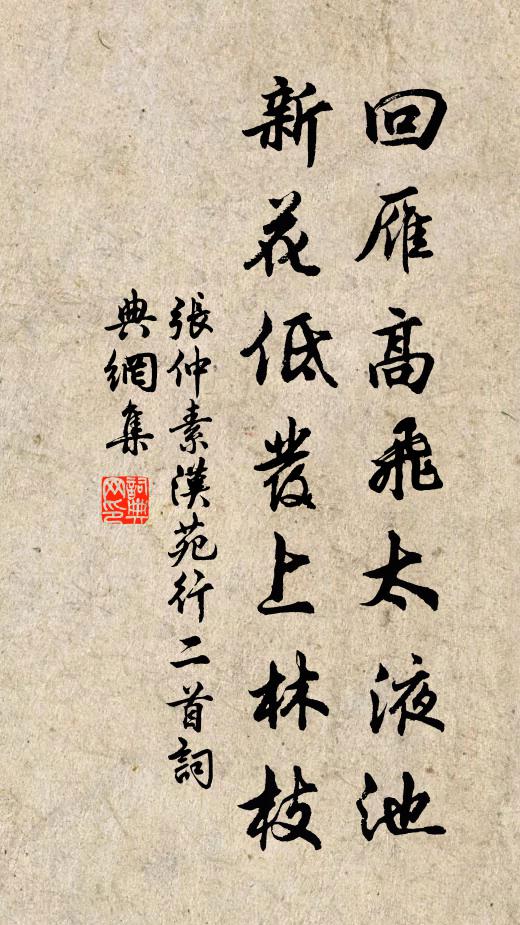 回雁高飛太液池
新花低發上林枝
張仲素漢苑行二首詞
典網集
詞典
网印